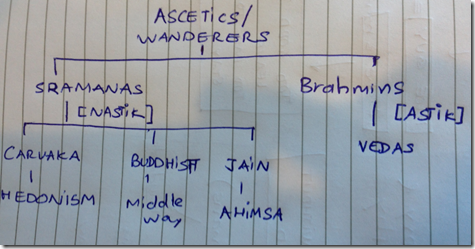 ASCETICS/
WANDERERS
SRAMANAS Brahmins
[NASTIK] [ASTIK]
VEDAS
CARVAKA BUDDHIST JAIN
HEDONISM Middle AHIMSA
Way